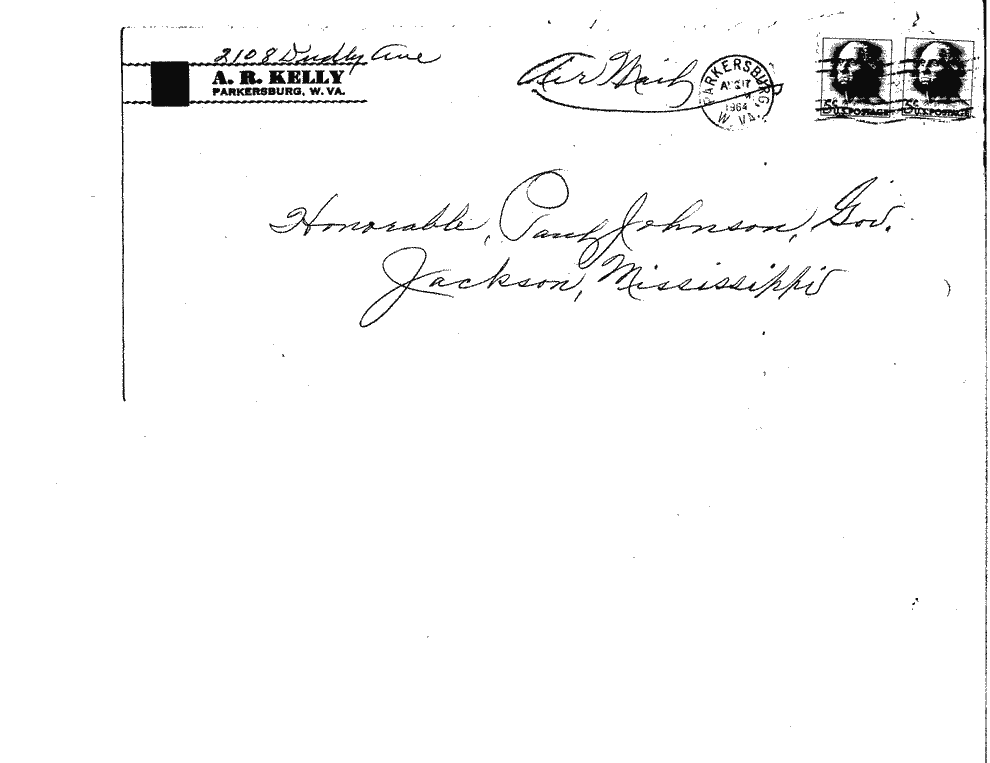 2108 Dudly Ave
A. R. KELLY
PARKERSBURG, W. VA.
Air Mail
PARKERSBURG,
17
1964
W. VA.
5¢ U.S. POSTAGE
5¢ U.S. POSTAGE
Honorable, Paul Johnson, Gov.
Jackson, Mississippi